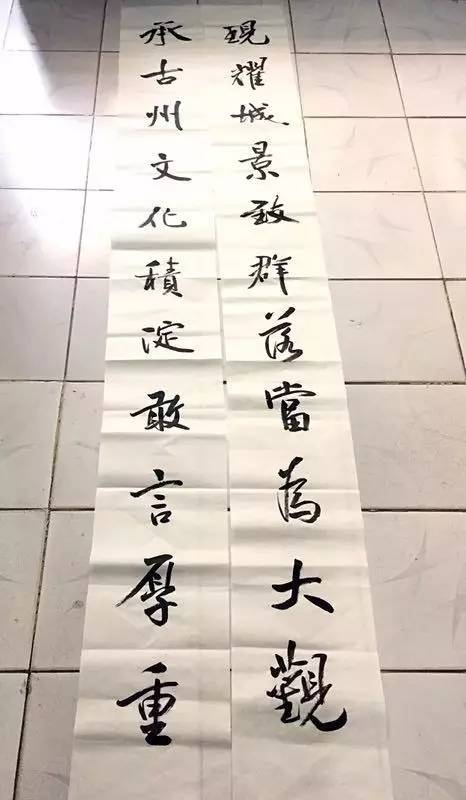 現耀城景致群落當為大觀
承古州文化積淀敢言厚重